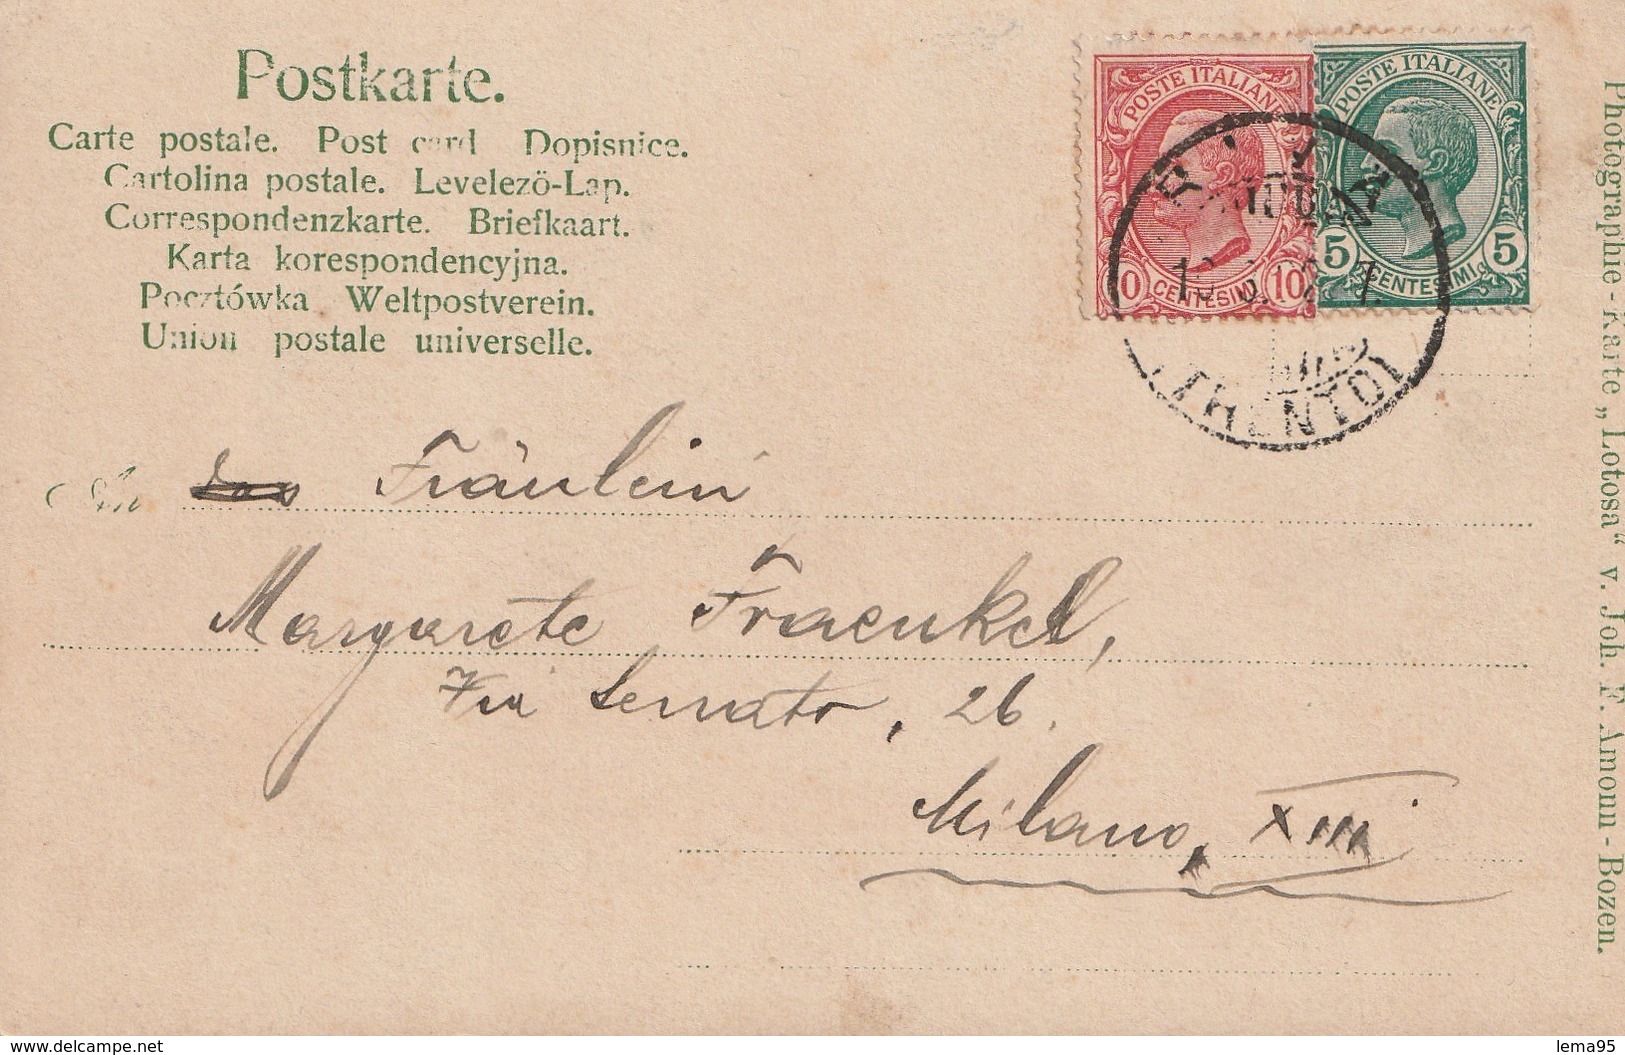 Postkarte.
Carte postale. Post card Dopisnice.
Cartolina postale. Levelezö-Lap.
Correspondenzkarte. Briefkaart.
Karta korespondencyjna.
Pocztówka Weltpostverein.
Union postale universelle.
POSTE ITALIANE
10 CENTESIMI 10
POSTE ITALIANE
5 CENTESIMI 5
(TRENTO)
An Fräulein
Margarete Fraenkel,
Via Senato, 26.
Milano, XIII
Photographie-Karte „Lotosa“ v. Joh. F. Amonn - Bozen.
www.delcampe.net
lema95